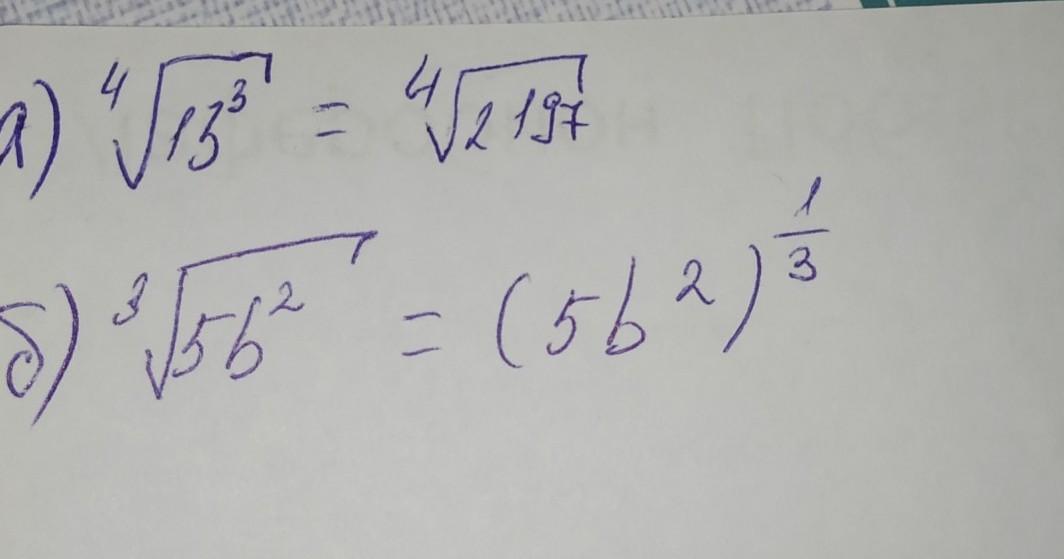 а) ⁴√13³ = ⁴√2197
б) ³√5b² = (5b²)^(1/3)